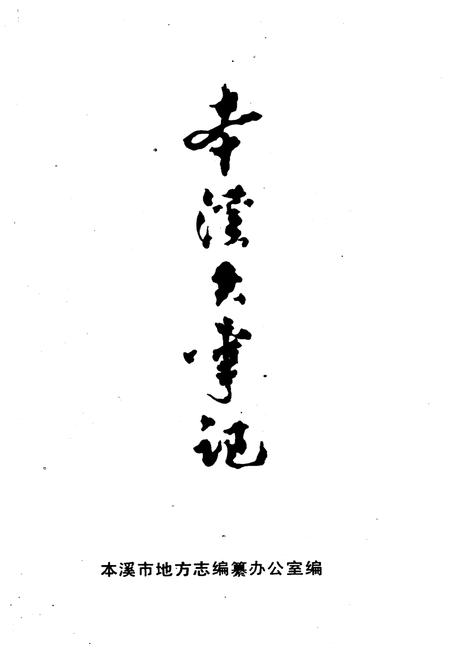 本溪大事记
本溪市地方志编纂办公室编